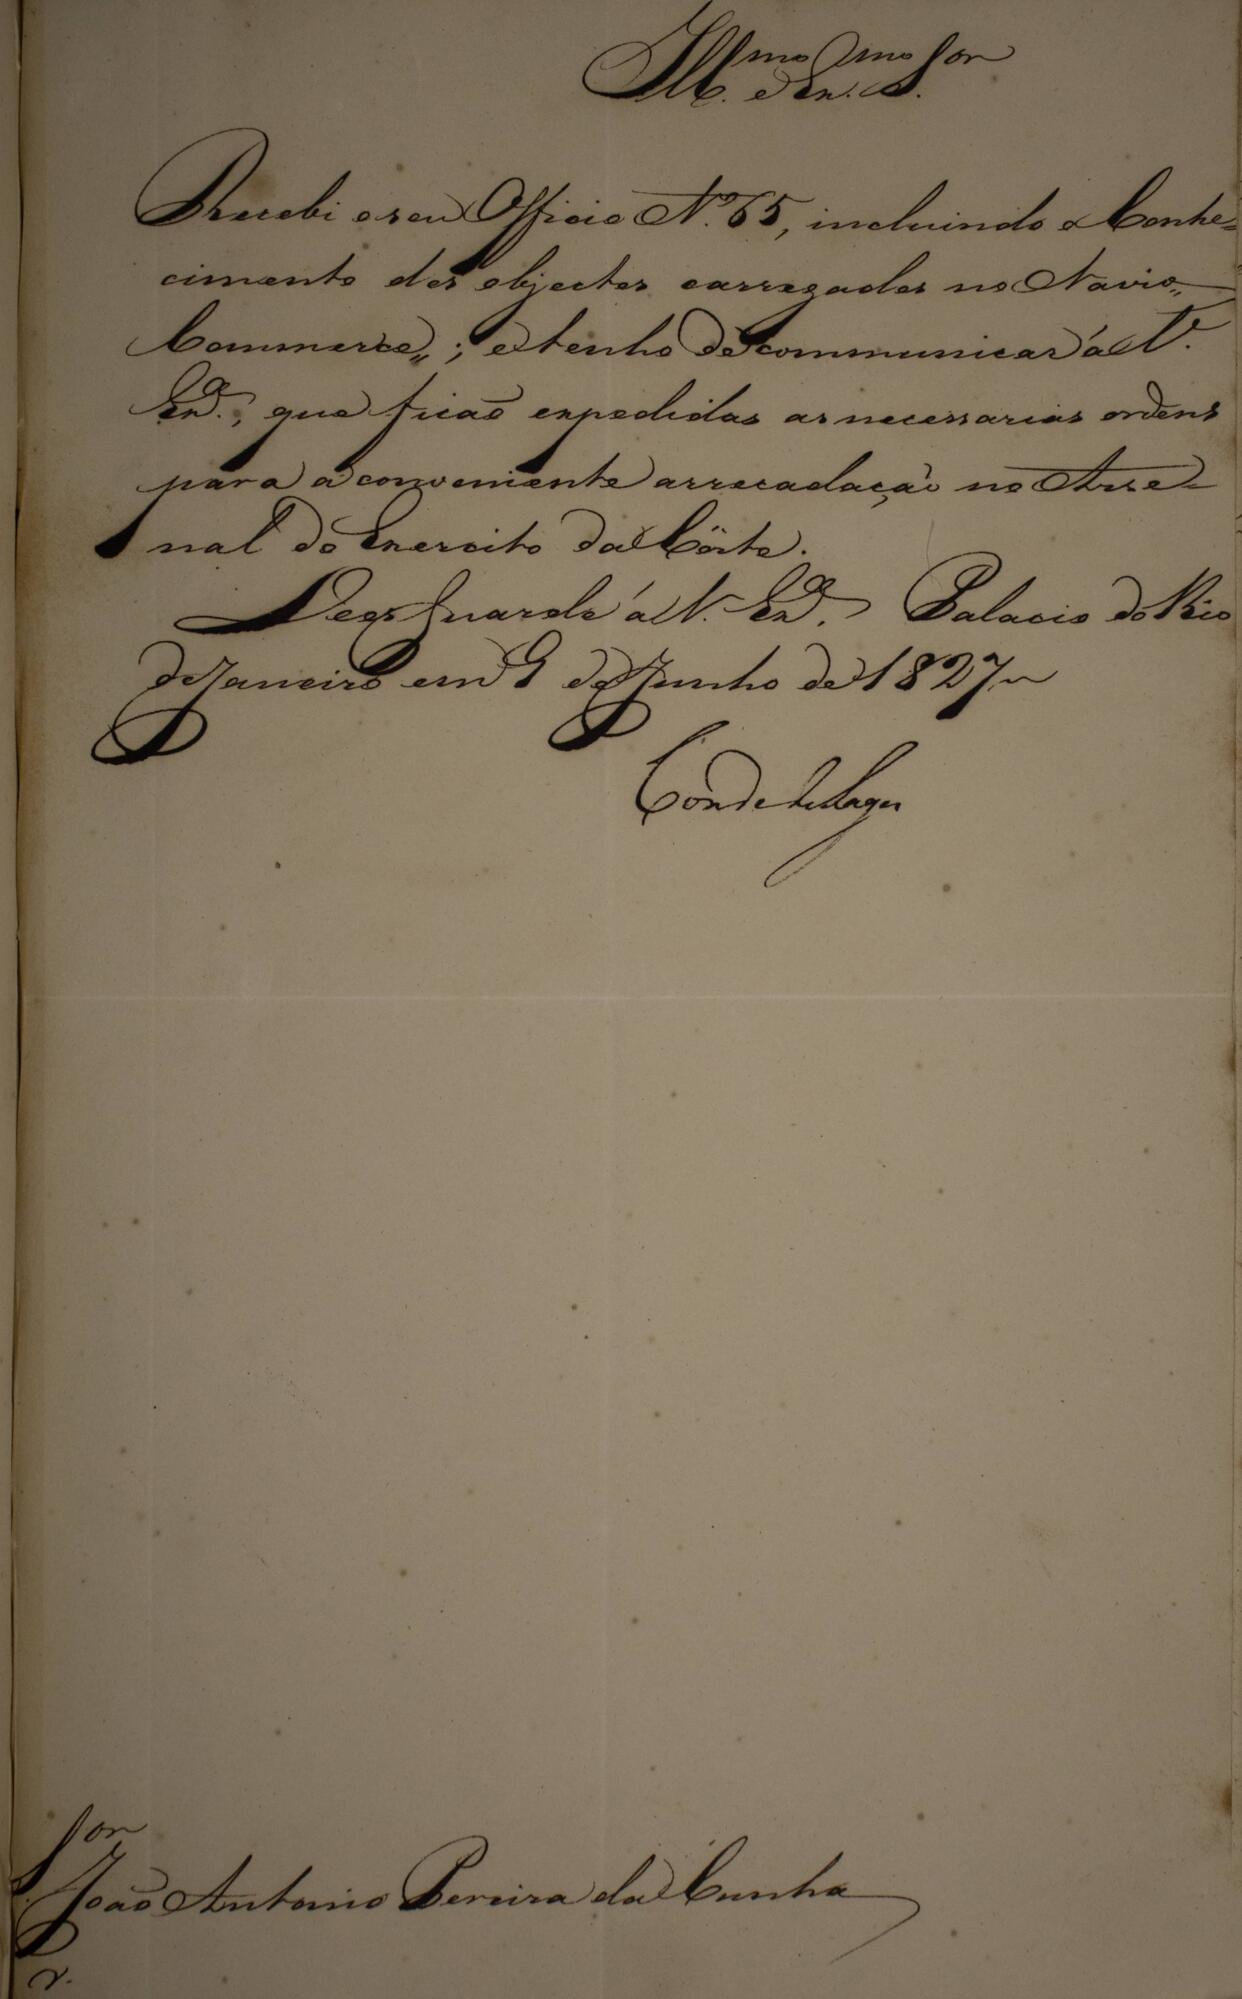 Ill.mo e Ex.mo S.or
Recebi o seu Officio N.o 65, incluindo o Conhe=
cimento dos objectos carregados no Navio,,
Commerce,,; e tenho de communicar á V.
Ex.a, que ficão expedidas as necessarias ordens
para a conveniente arrecadação no Arse=
nal do Exercito da Côrte.
Deos Guarde á V. Ex.a. Palacio do Rio
de Janeiro em 9 de Junho de 1827
Conde de Lages
S.or
João Antonio Pereira da Cunha